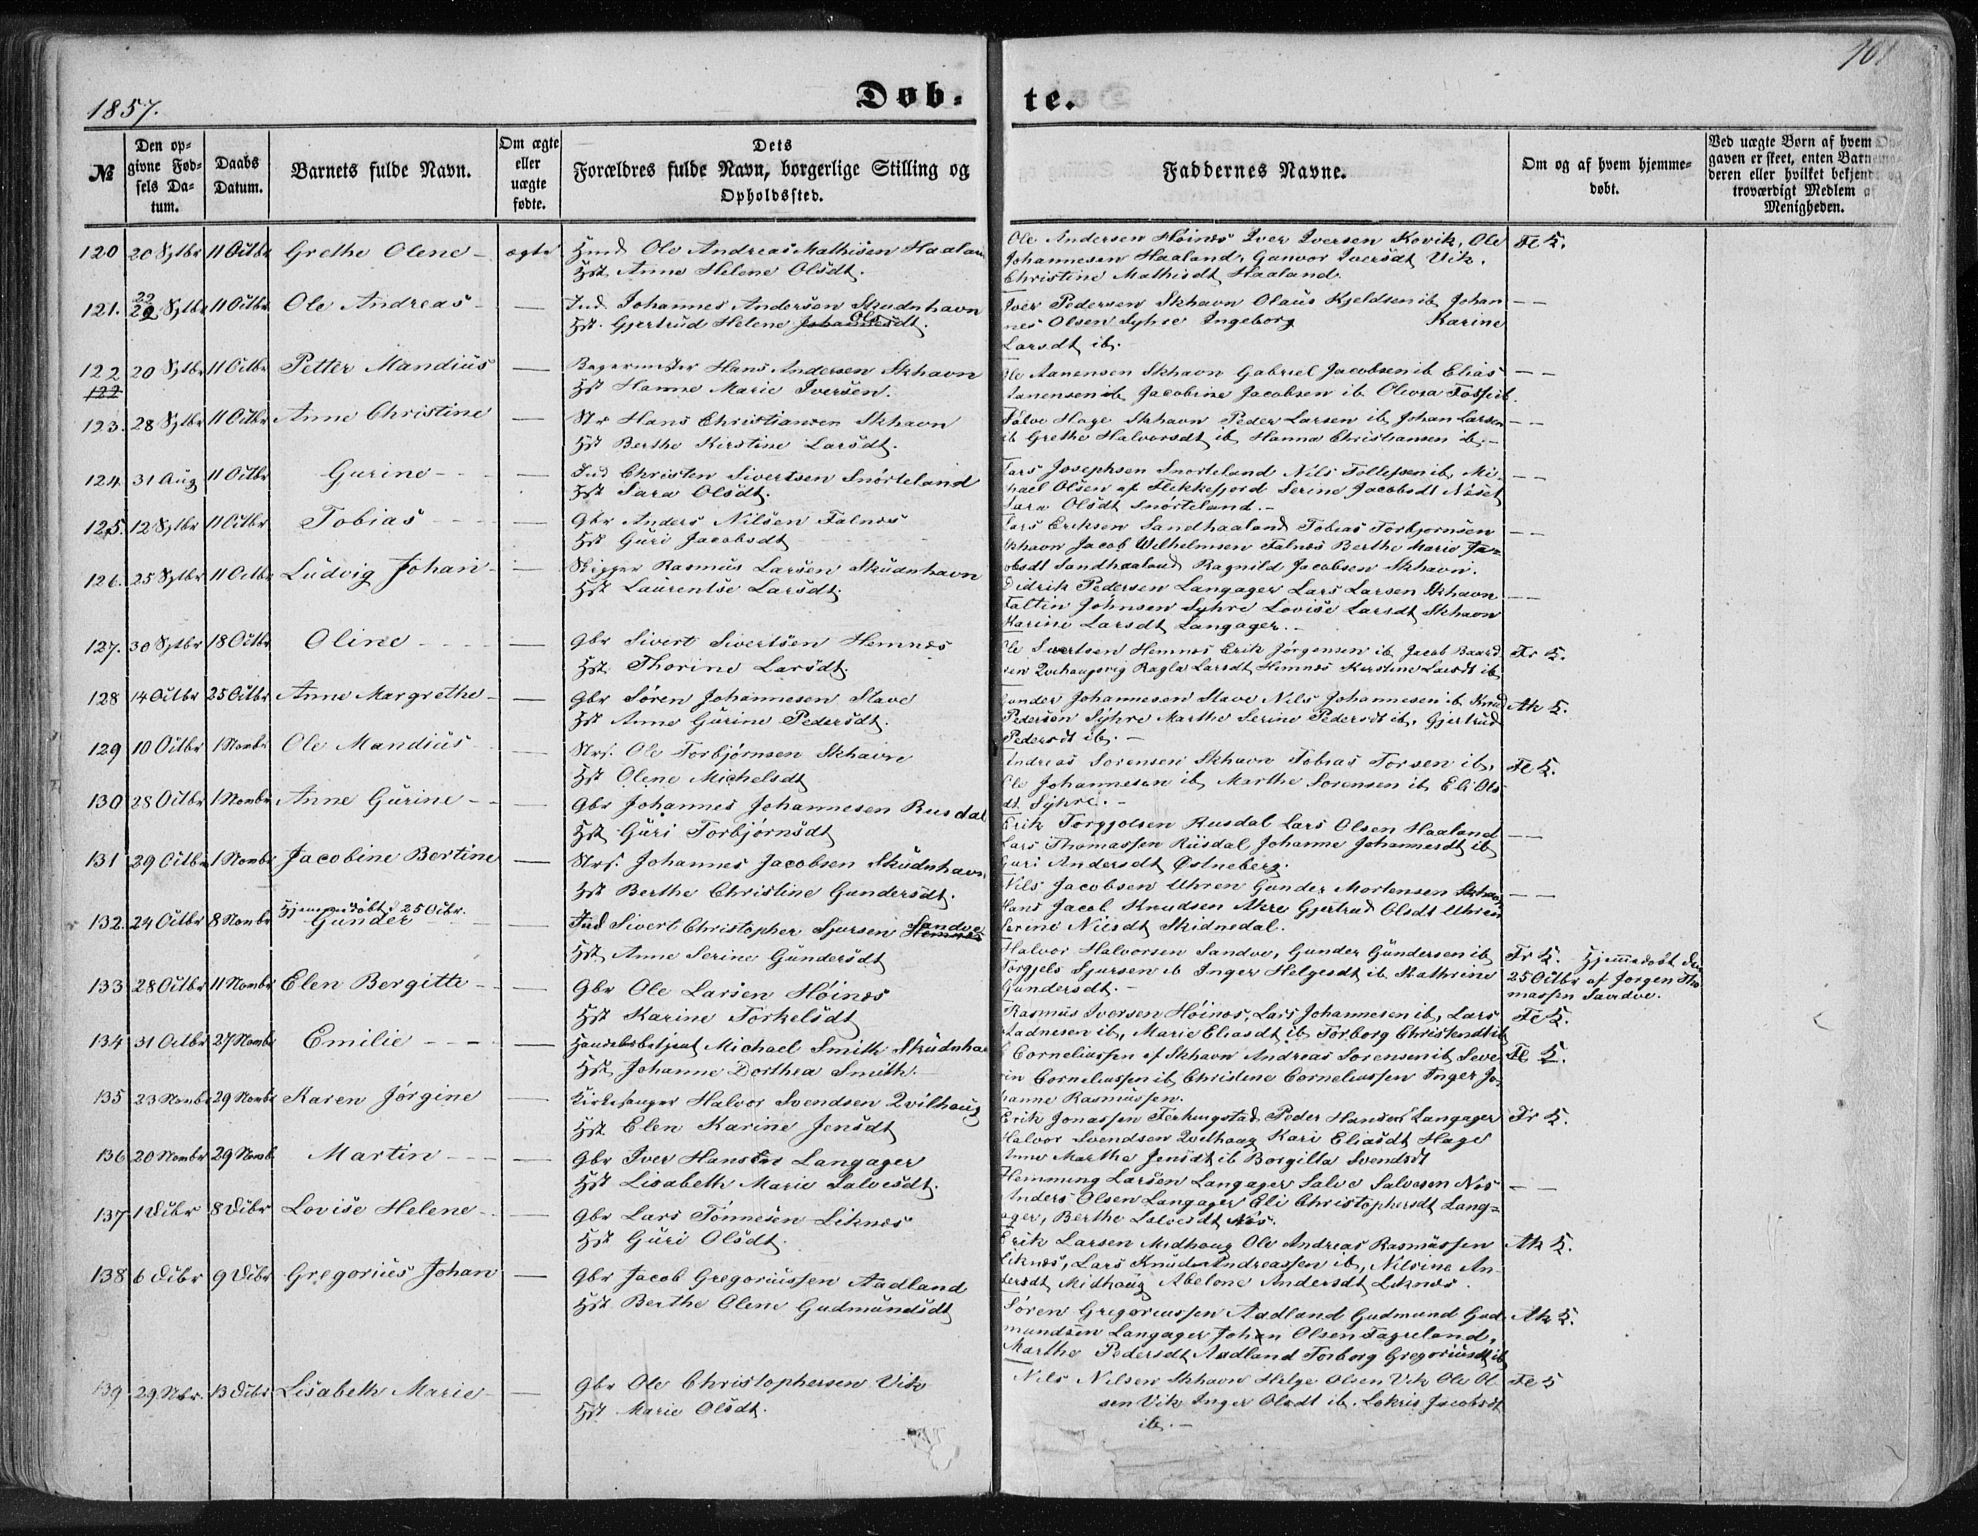 1857.
Døb-
te.
101
№
Den op-
givne Fød-
sels Da-
tum.
Daabs
Datum.
Barnets fulde Navn.
Om ægte
eller
uægte
fødte.
Dets
Forældres fulde Navn, borgerlige Stilling og
Opholdssted.
Faddernes Navne.
Om og af hvem hjemme-
døbt.
Ved uægte Børn af hvem Op-
gaven er skeet, enten Barnemo-
deren eller hvilket bekjendt og
troværdigt Medlem af
Menigheden.
120 20 Sptbr 11 Octbr Grethe Olene - ægte Hmd Ole Andreas Mathisen Haaland
Hst. Anne Helene Olsdt.
Ole Andersen Høines Iver Iversen Kovik, Ole Fe K.
Johannesen Haaland, Gunvor Iversdt Vik.
Christine Mathisdt Haaland.
121. 22 Sptbr 11 Octbr Ole Andreas - — Ind Johannes Andersen Skudnhavn
Hst. Gjertrud Helene Johannesdt. Ols
Iver Pedersen Skhavn Olaus Kjeldsen ib Johan — —
nes Olsen Syhre Ingeborg Karine
Larsdt ib.
122 20 Sptbr 11 Octbr Petter Mandius — Bagermester Hans Andersen Skhavn
122 Hst Hanne Marie Iversen.
Ole Aanensen Skhavn Gabriel Jacobsen ib Elias — —
Aanensen ib Jacobine Jacobsen ib Olivia Fosse ib.
123. 28 Sptbr 11 Octbr Anne Christine — Str Hans Christiansen Skhavn
Hst Berthe Kirstine Larsdt.
Tolve Hage Skhavn Peder Larsen ib Johan Larsen — —
ib Grethe Halvorsdt ib Hanna Christiansen ib. -
124. 31 Aug 11 Octbr Gurine - — Ind Christen Sivertsen Snørteland
Hst Sara Olsdt.
Lars Josephsen Snorteland Nils Tollefsen ib, Mi- — —
chael Olsen af Flekkefjord Serine Jacobsdt Neset
Sara Olsdt Snørteland. -
125. 12 Sptbr 11 Octbr Tobias - — Gbr Anders Nilsen Falnes
Hst Guri Jacobsdt
Lars Eriksen Sandhaaland Tobias Torbjornsen — —
Skhavn Jacob Wilhelmsen Falnes Berthe Marie Ja-
cobsdt Sandhaaland Ragnild Jacobsen Skhavn.
126. 25 Sptbr 11 Octbr Ludvig Johan - — Skipper Rasmus Larsen Skudnhavn
Hst Laurentse Larsdt.
Didrik Pedersen Langager Lars Larsen Skhavn — —
Faltin Johnsen Syhre Lovise Larsdt Skhavn
Karine Larsdt Langager. -
127. 30 Sptbr 18 Octbr Oline - — Gbr Sivert Sivertsen Hemnes
Hst. Thorine Larsdt.
Ole Sivertsen Hemnes Erik Jørgensen ib Jacob Baard Fr K.
sen Ragla Larsdt Hemnes Kirstine Larsdt ib
128 14 Octbr 25 Octbr Anne Margrethe - — Gbr Søren Johannesen Stave
Hst Anne Gurine Pedersdt.
Gunder Johannesen Stave Nils Johannesen ib Knud Ak K.
Pedersen Syhre Marthe Serine Pedersdt ib, Gjertrud
Pedersdt ib. -
129 10 Octbr 1 Novbr Ole Mandius — Str. Ole Torbjørnsen Skhavn
Hst Olene Michelsdt
Andreas Sorensen Skhavn Tobias Torsen ib, Fe K.
Ole Johannesen ib Marthe Sorensen ib Eli Ols
dt. Syhre. -
130 28 Octbr 1 Novbr Anne Gurine - — Gbr Johannes Johannesen Rusdal
Hst Guri Torbjørnsdt
Erik Torgjolsen Rusdal Lars Olsen Haaland — —
Lars Thomassen Rusdal Johanne Johannesdt ib
Guri Andersdt Østneberg.
131 29 Octbr 1 Novbr Jacobine Bertine — Str. Johannes Jacobsen Skudnhavn
Hst Berthe Christine Gundersdt.
Nils Jacobsen Uhren Gunder Mortensen Skhavn — —
Hans Jacob Knudsen Akre Gjertrud Olsdt Uhren
Serine Nilsdt Skidnedal.
Hjemmedøbt d. 25 Octbr.
132. 24 Octbr 8 Novbr Gunder — Ind Sivert Christopher Sjursen Hemnes Sandve
Hst, Anne Serine Gundersdt
Halvor Halvorsen Sandve, Gunder Gundersen ib Fr K. - Hjemmedøbt den
Torgjels Sjursen ib Inger Helgesdt ib Kathrine 25 Octbr af Jorgen Tho
Gundersdt. - massen Sandve.
133 28 Octbr 11 Novbr Elen Bergitte - — Gbr Ole Larsen Høines
Hst Karine Torkelsdt
Rasmus Iversen Høines, Lars Johannesen ib, Lars Fe K.
Aadnesen ib, Marie Eliasdt ib Torborg Christendt ib
134 31 Octbr 27 Novbr Emilie - — Handelsbetjent Michael Smith Skudnhavn
Hst, Johanne Dorthea Smith. -
Corneliussen af Skhavn Andreas Sorensen ib Seve Fe K.
rin Corneliussen ib, Christine Corneliussen Inger Jo-
hanne Rasmussen.
135 23 Novbr 29 Novbr Karen Jørgine — Kirkesanger Halvor Svendsen Qvilhaug
Hst Elen Karine Jensdt
Erik Jonassen Ferkingstad Peder Hansen Langager Fr K.
Halvor Svendsen Qvilhaug Kari Eliasdt Hage
Anne Marthe Jensdt ib Borgilla Svendsdt
136 20 Novbr 29 Novbr Martin - — Gbr Iver Hansen Langager
Hst Lisabeth Marie Salvesdt.
Hemming Larsen Langager Salve Salvesen Nes — —
Anders Olsen Langager Eli Christophersdt Lang-
ager, Berthe Salvesdt Nes.
137 1 Decbr 8 Decbr Lovise Helene - — Gbr Lars Tønnesen Liknes
Hst Guri Olsdt.
Erik Larsen Midhaug Ole Andreas Rasmussen Ak K.
Liknes, Lars Knud Andreassen ib, Nilsine An-
dersdt Midhaug Abelone Andersdt Liknes.
138 6 Decbr 9 Decbr Gregorius Johan — Gbr Jacob Gregoriussen Aadland
Hst. Berthe Olene Gudmundsdt
Søren Gregoriussen Aadland Gudmund Gud Ak K.
mundsen Langager Johan Olsen Fagreland,
Marthe Pedersdt Aadland Torborg Gregoriusdt ib
139 29 Nbr. 13 Decbr Lisabeth Marie - — Gbr Ole Christophersen Vik
Hst Marie Olsdt.
Nils Nilsen Skhavn Helge Olsen Vik Ole Ol Fe K
sen Vik Inger Olsdt ib. Lokris Jacobsdt
ib. -